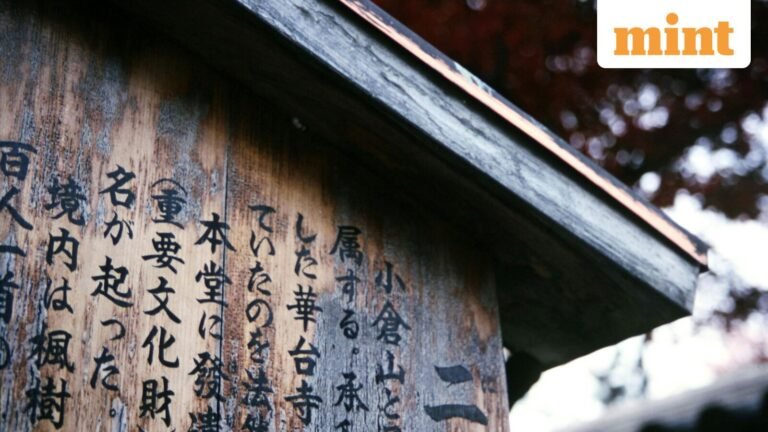 mint
二
小倉山と
属する。承
した華台寺
ていたのを法
本堂に發
(重要文化財
名が起った。
境内は楓樹
百人一首の